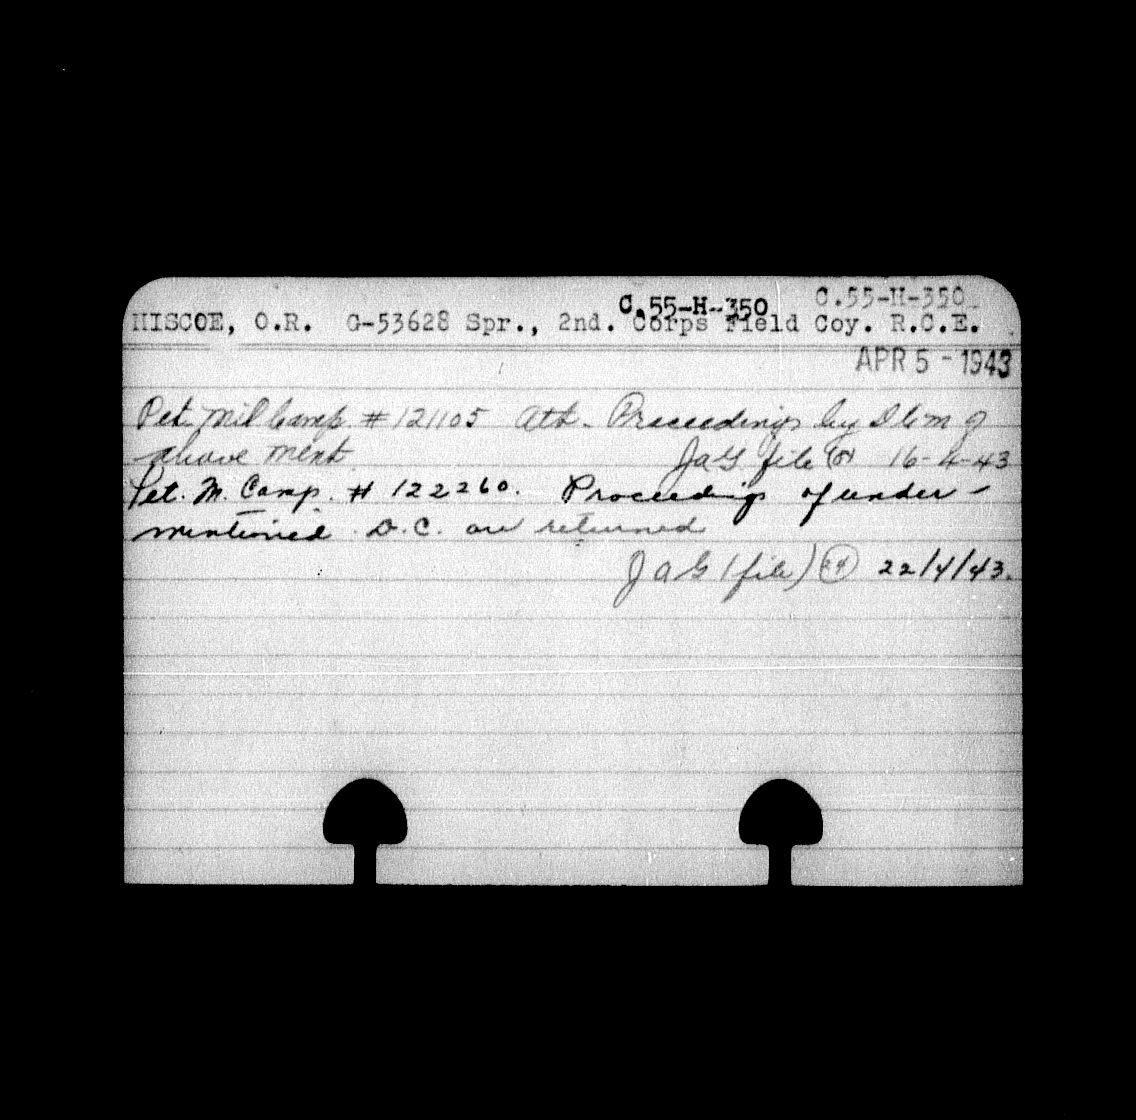 C.55-H-350 C.55-H-350
HISCOE, O.R. G-53628 Spr., 2nd. Corps Field Coy. R.C.E.
APR 5 - 1943
Pet. Mil Camp # 121105 Ath. Proceedings by D C M of
above ment. JaG file 16-4-43
Pet. M. Camp. # 122260. Proceedings of under-
mentioned D.C. are returned
J a G (file) 22/4/43.